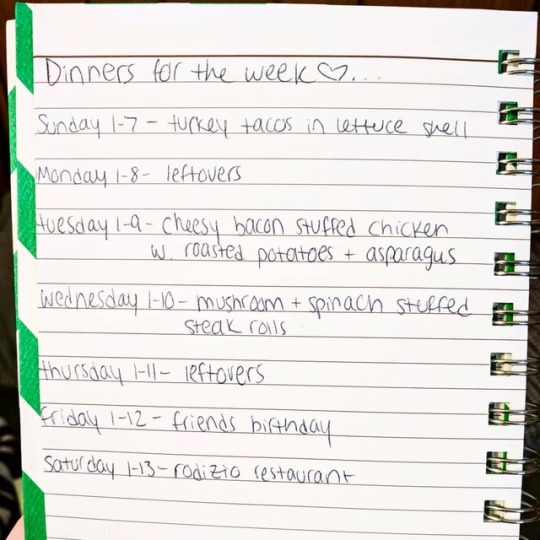 Dinners for the week ♡...
Sunday 1-7 - turkey tacos in lettuce shell
Monday 1-8- leftovers
tuesday 1-9- cheesy bacon stuffed chicken
w. roasted potatoes + asparagus
wednesday 1-10- mushroom + spinach stuffed
steak rolls
thursday 1-11- leftovers
friday 1-12 - friends birthday
Saturday 1-13- rodizio restaurant